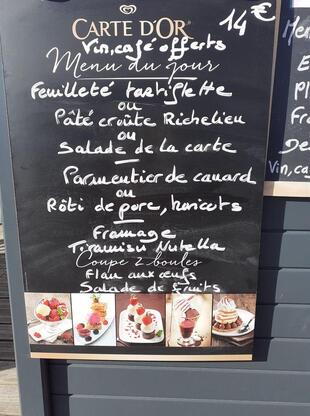 CARTE D'OR
14€
Vin, café offerts
Menu du jour
Feuilleté tartiflette
ou
Pâté croûte Richelieu
ou
Salade de la carte
Parmentier de canard
ou
Rôti de porc, haricots
Fromage
Tiramisu Nutella
Coupe 2 boules
Flan aux œufs
Salade de fruits
Men
E
Pl
Fro
Des
Vin, ca